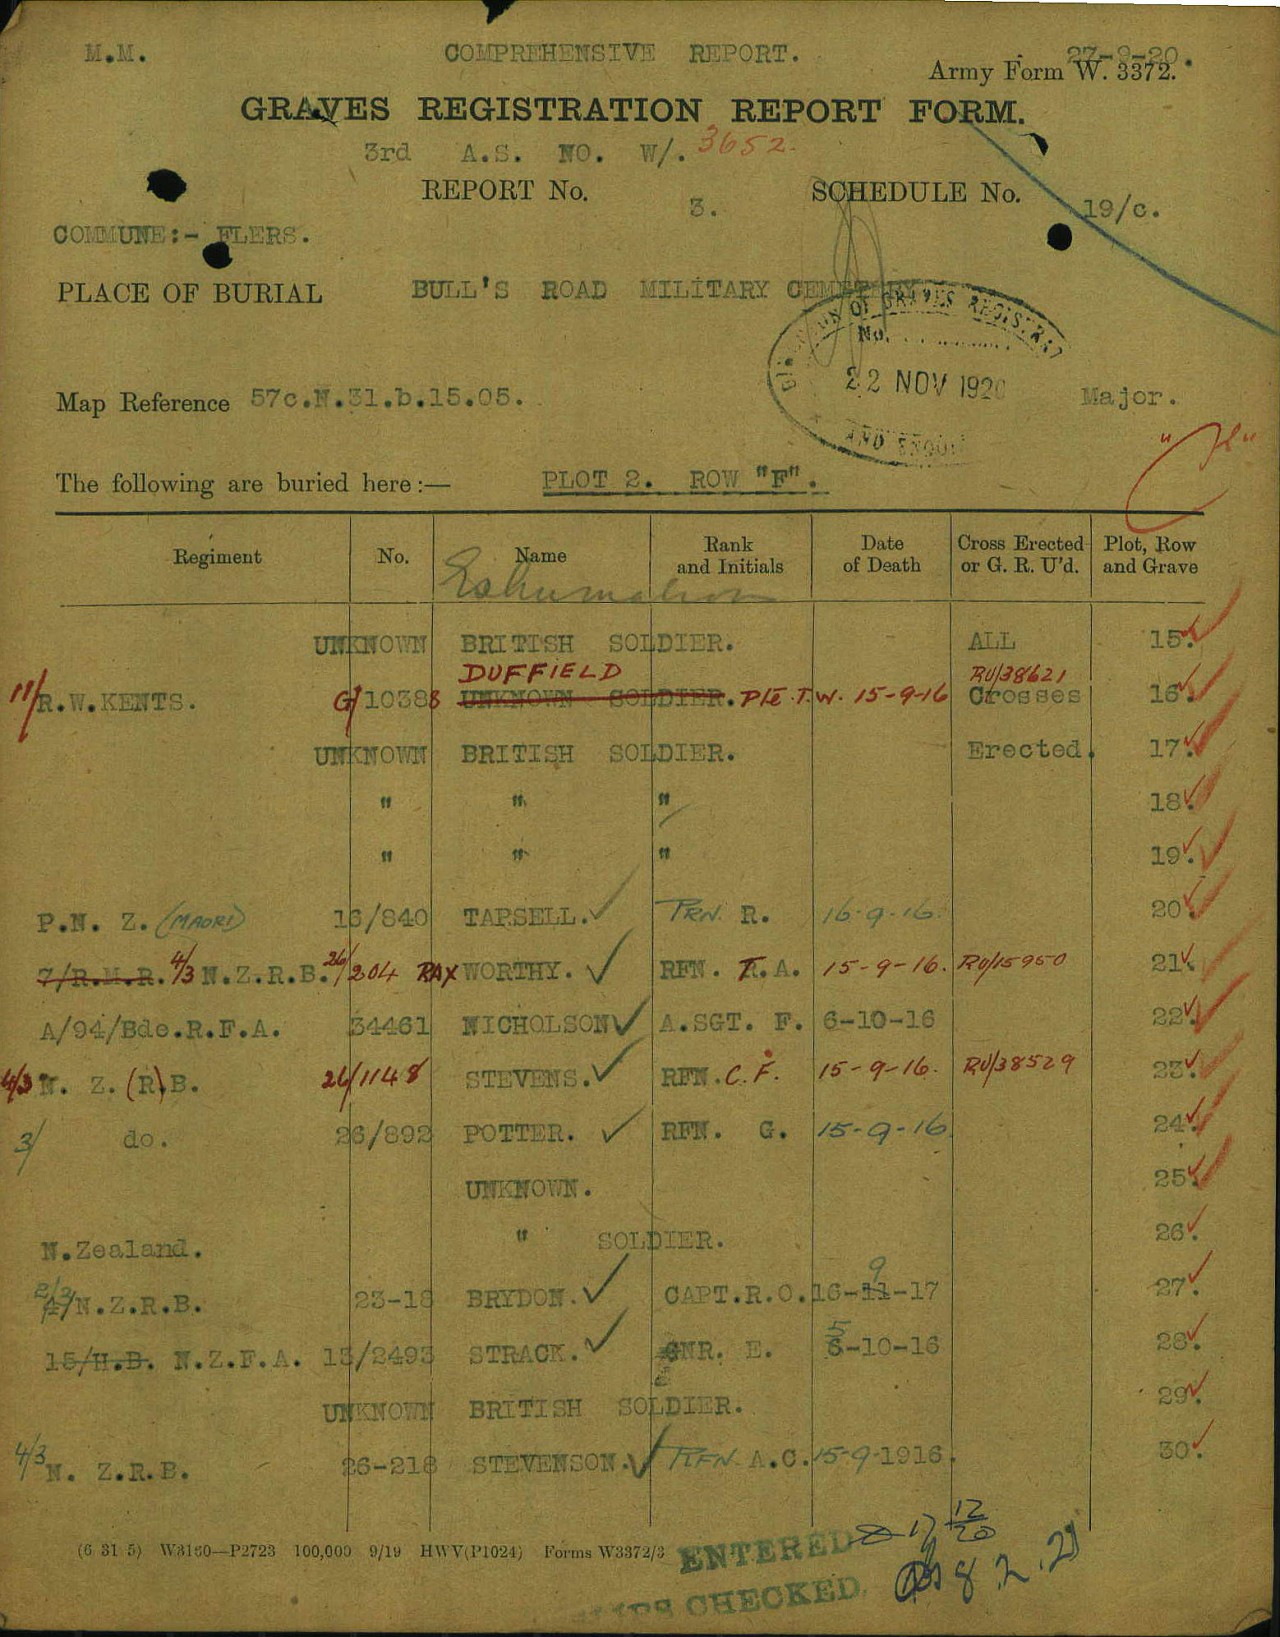 M.M. COMPREHENSIVE REPORT. 27-9-20.
Army Form W. 3372.
GRAVES REGISTRATION REPORT FORM.
3rd A.S. NO. W/. 3652.
REPORT No. 3. SCHEDULE No. 19/c.
COMMUNE:- FLERS.
PLACE OF BURIAL BULL'S ROAD MILITARY CEMETERY
OF GRAVES REGISTRAT
No.
22 NOV 1920
AND ENQUI
Map Reference 57c.N.31.b.15.05. Major.
The following are buried here:— PLOT 2. ROW "F".
Regiment No. Name Rank and Initials Date of Death Cross Erected or G. R. U'd. Plot, Row and Grave
Exhumation
UNKNOWN BRITISH SOLDIER. ALL 15.
DUFFIELD RU/38621
11/R.W.KENTS. G/10388 UNKNOWN SOLDIER. Pte T.W. 15-9-16 Crosses 16.
UNKNOWN BRITISH SOLDIER. Erected. 17.
" " " 18.
" " " 19.
P.N. Z. (MAORI) 16/840 TAPSELL. PRN. R. 16-9-16. 20.
7/R.M.R. 4/3 N.Z.R.B. 26/204 RAXWORTHY. RFN. F.A. 15-9-16. RU/15950 21.
A/94/Bde.R.F.A. 34461 NICHOLSON A.SGT. F. 6-10-16 22.
4/3 N. Z. (R).B. 26/1148 STEVENS. RFN. C.F. 15-9-16. RU/38529 23.
3/ do. 26/892 POTTER. RFN. G. 15-9-16. 24.
UNKNOWN. 25.
N.Zealand. " SOLDIER. 26.
2/3 4/N.Z.R.B. 23-18 BRYDON. CAPT.R.O. 16-11-17 9 27.
15/H.B. N.Z.F.A. 13/2493 STRACK. GNR. E. 6-10-16 5 28.
UNKNOWN BRITISH SOLDIER. 29.
4/3 N. Z.R.B. 26-218 STEVENSON. RFN. A.C. 15-9-1916. 30.
(6 31 5) W3160—P2723 100,000 9/19 HWV(P1024) Forms W3372/3
ENTERED 17 12/20
CHECKED. 8.2.21